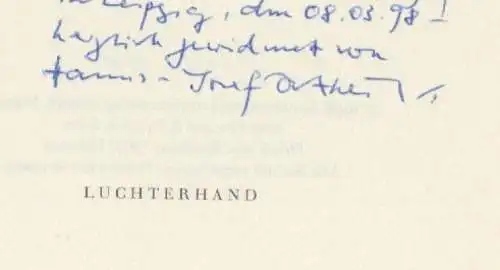 in Leipzig, den 08.03.98!
herzlich gewidmet von
Hanns-Josef Ortheil
LUCHTERHAND